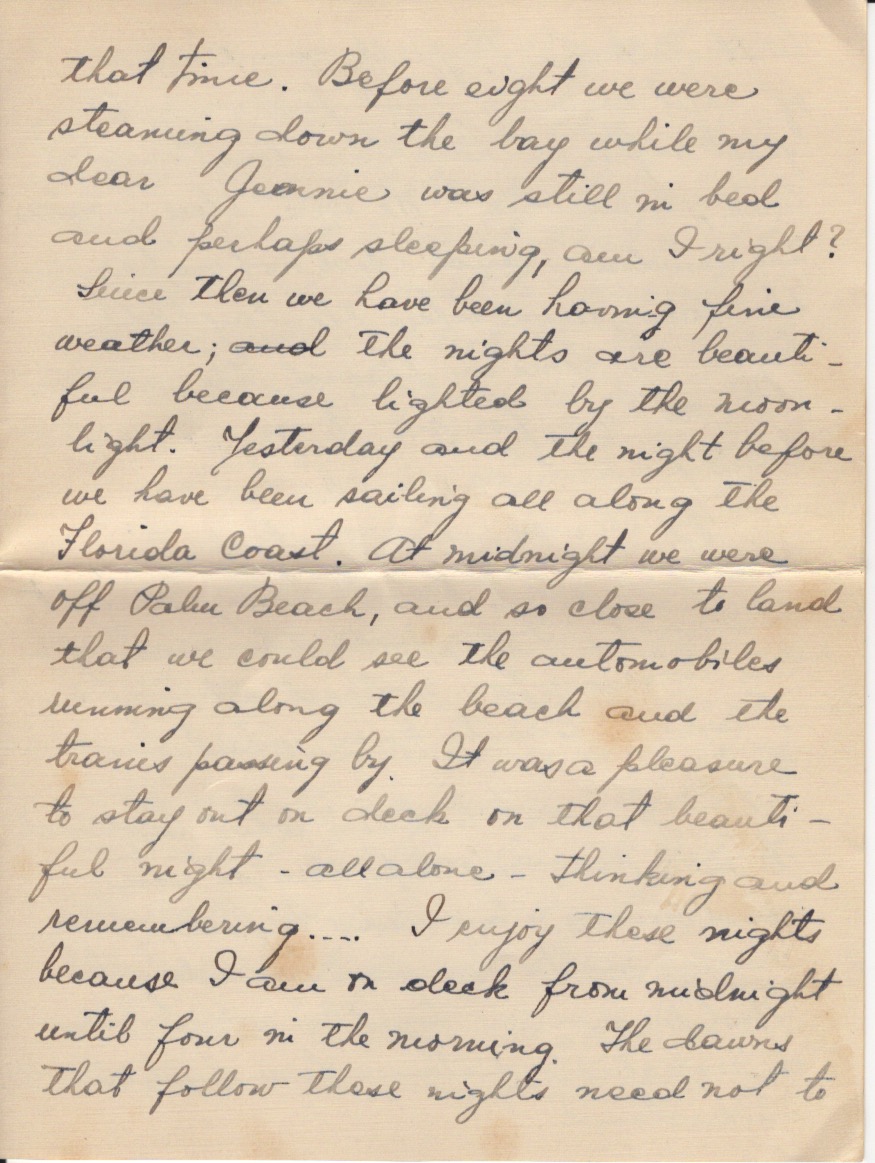 that time. Before eight we were
steaming down the bay while my
dear Jeannie was still in bed
and perhaps sleeping, am I right?
Since then we have been having fine
weather; and the nights are beauti-
ful because lighted by the moon-
light. Yesterday and the night before
we have been sailing all along the
Florida Coast. At midnight we were
off Palm Beach, and so close to land
that we could see the automobiles
running along the beach and the
trains passing by. It was a pleasure
to stay out on deck on that beauti-
ful night - all alone - thinking and
remembering.... I enjoy these nights
because I am on deck from midnight
until four in the morning. The dawns
that follow these nights need not to